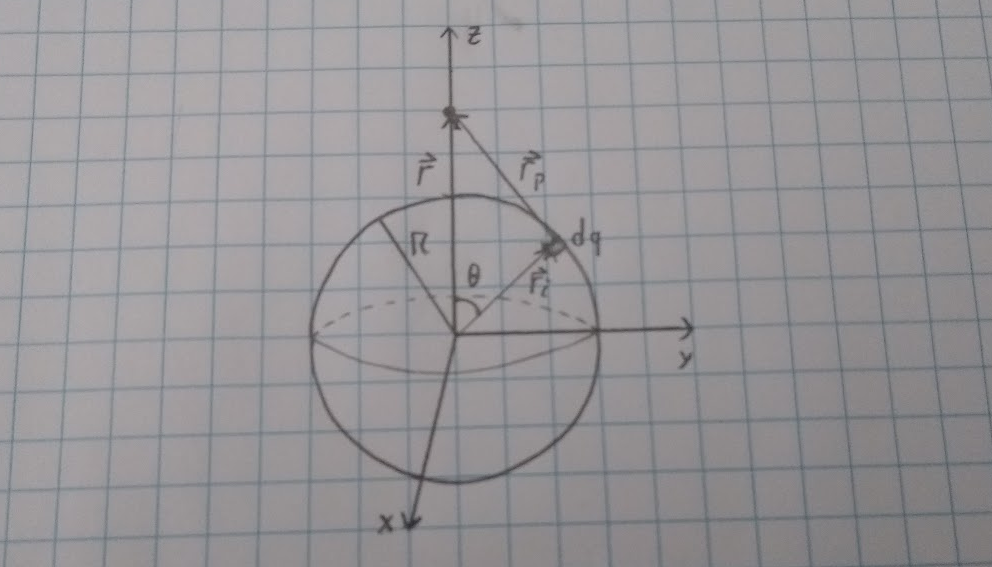 z
r⃗
r⃗ₚ
R
dq
θ
r⃗ᵢ
y
x